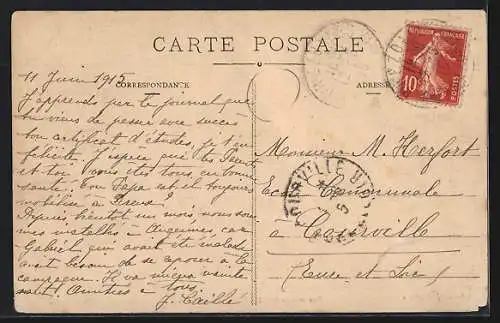 CARTE POSTALE
CORRESPONDANCE
ADRESSE
RÉPUBLIQUE FRANÇAISE
10
POSTES
11 Juin 1915
J'apprends par le journal que
tu viens de passer avec succès
ton certificat d'études, je t'en
félicite. J'espère que tes Parents
et toi vous êtes tous en bonne
santé. Ton Papa est-il toujours
mobilisé à Dreux?
Depuis bientôt un mois, nous sommes
installés à
Gabriel qui avait été malade
avait besoin de se reposer à la
campagne. Il va mieux mainte
nant. Amitiés à tous.
J. Caillé
Monsieur M. Herfort
Ecole Communale
à Courville
(Eure et Loir)
COURVILLE